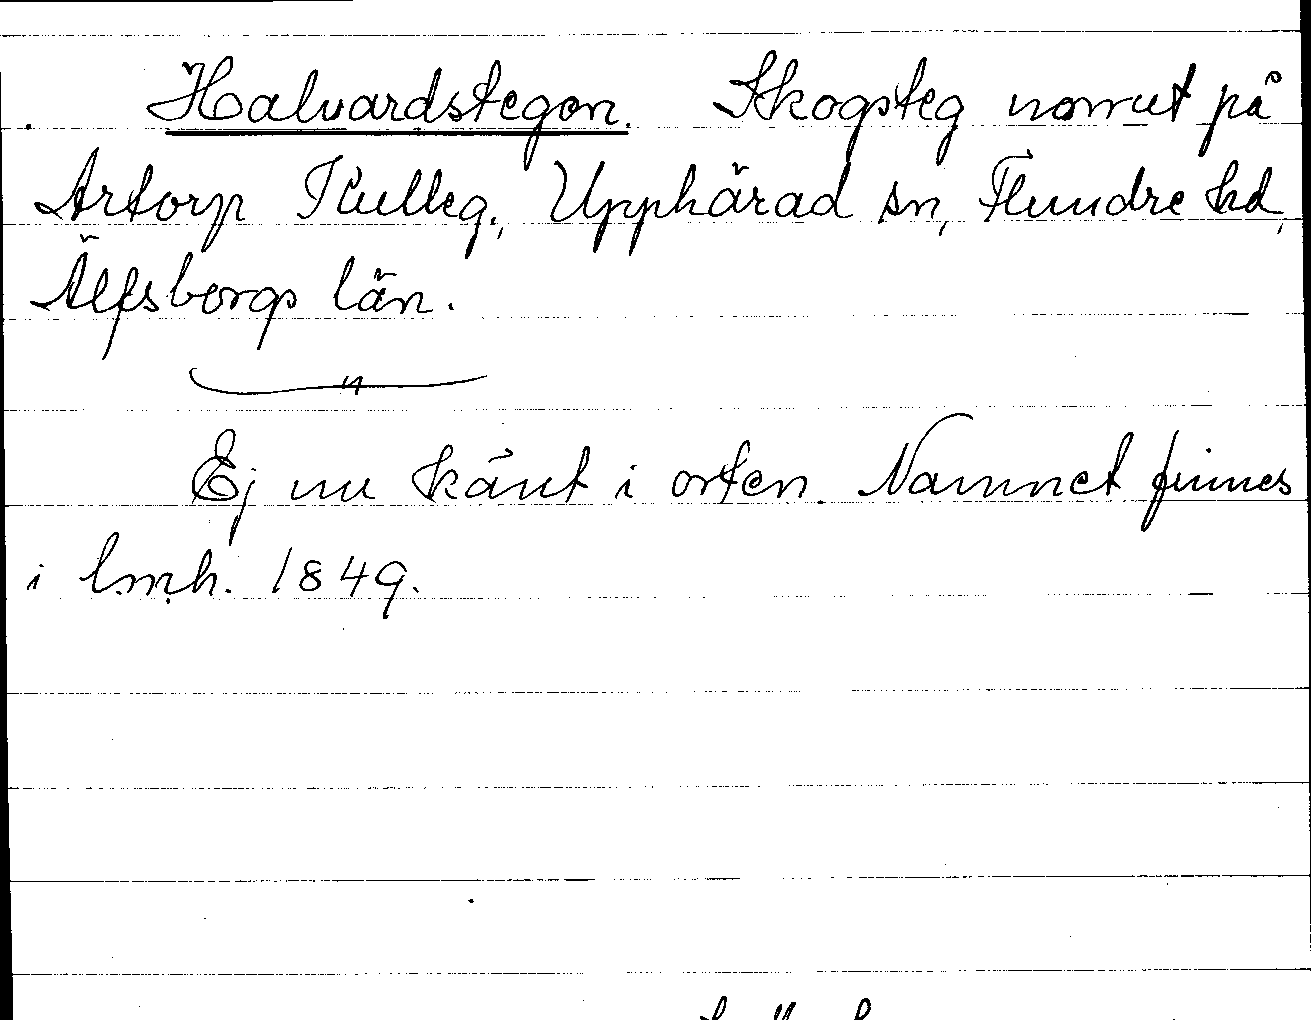 Halvardstegen. Skogsteg norrut på
Artorp Kulleg., Upphärad sn, Flundre hd,
Älfsborgs län.
"
Ej nu känt i orten. Namnet finnes
i lmh. 1849.